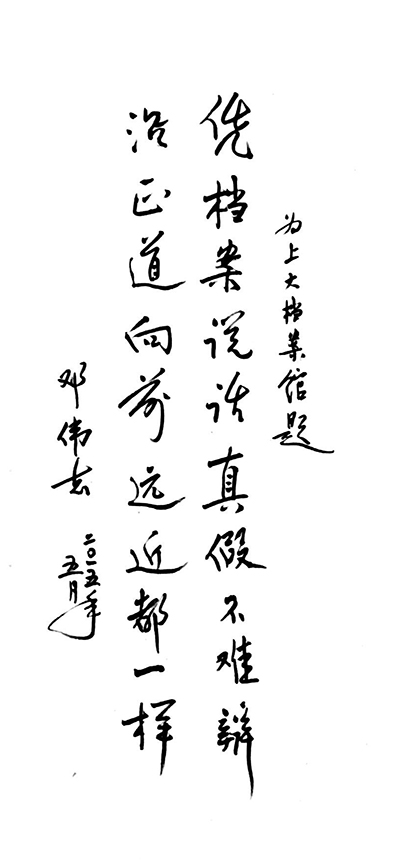 为上大档案馆题
凭档案说话真假不难辨
沿正道向前远近都一样
邓伟志
二〇一五年
五月